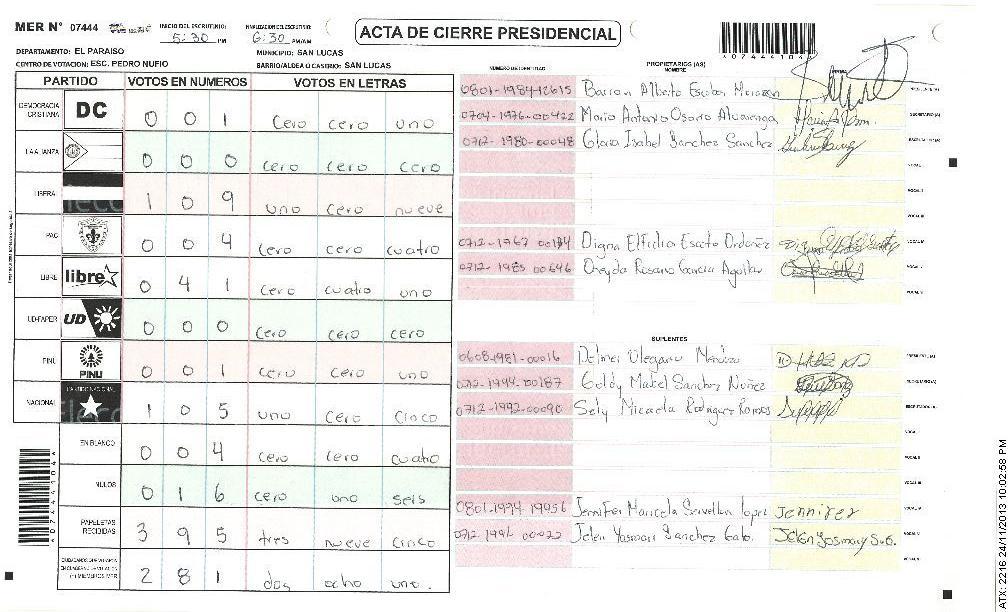 MER N° 07444
INICIO DEL ESCRUTINIO: 5:30 PM
FINALIZACION DEL ESCRUTINIO: 6:30 PM/AM
ACTA DE CIERRE PRESIDENCIAL
*07444104*
DEPARTAMENTO: EL PARAISO
MUNICIPIO: SAN LUCAS
CENTRO DE VOTACION: ESC. PEDRO NUFIO
BARRIO/ALDEA O CASERIO: SAN LUCAS
PARTIDO VOTOS EN NUMEROS VOTOS EN LETRAS
DEMOCRACIA CRISTIANA DC 0 0 1 Cero cero uno
LA ALIANZA 0 0 0 cero cero cero
LIBERAL 1 0 9 uno cero nueve
PAC 0 0 4 cero cero cuatro
LIBRE libre 0 4 1 cero cuatro uno
UD-FAPER UD 0 0 0 cero cero cero
PINU PINU 0 0 1 cero cero uno
NACIONAL PARTIDO NACIONAL 1 0 5 uno cero cinco
EN BLANCO 0 0 4 cero cero cuatro
NULOS 0 1 6 cero uno seis
PAPELETAS RECIBIDAS 3 9 5 tres nueve cinco
2 8 1 dos ocho uno.
*07444104*
NUMERO DE IDENTIDAD
PROPIETARIOS (AS)
NOMBRE
FIRMA
0801-1984-12615 Barron Alberto Escobar PRESIDENTE (A)
0704-1976-00422 Mario Antonio Osorio SECRETARIO (A)
0712-1980-00048 Gloria Isabel Sanchez Sanchez ESCRUTADOR (A)
VOCAL I
VOCAL II
VOCAL III
0712-1967 Digna Escoto Ordoñez VOCAL IV
0712-1985 00646 Rosario Garcia Aguilar VOCAL V
VOCAL VI
SUPLENTES
0608-1981-00016 Delmer Olegario PRESIDENTE (A)
00187 Goldy Mabel Sanchez Nuñez SECRETARIO (A)
0712-1992-00090 Sely Micaela Rodriguez ESCRUTADOR (A)
VOCAL I
VOCAL II
VOCAL III
0801-1994 19956 Jennifer Maricela Servellon lopez Jennifer VOCAL IV
Jelen Yosmari Sanchez Jelen Yosmary VOCAL V
VOCAL VI
ATX: 2216 24/11/2013 10:02:58 PM